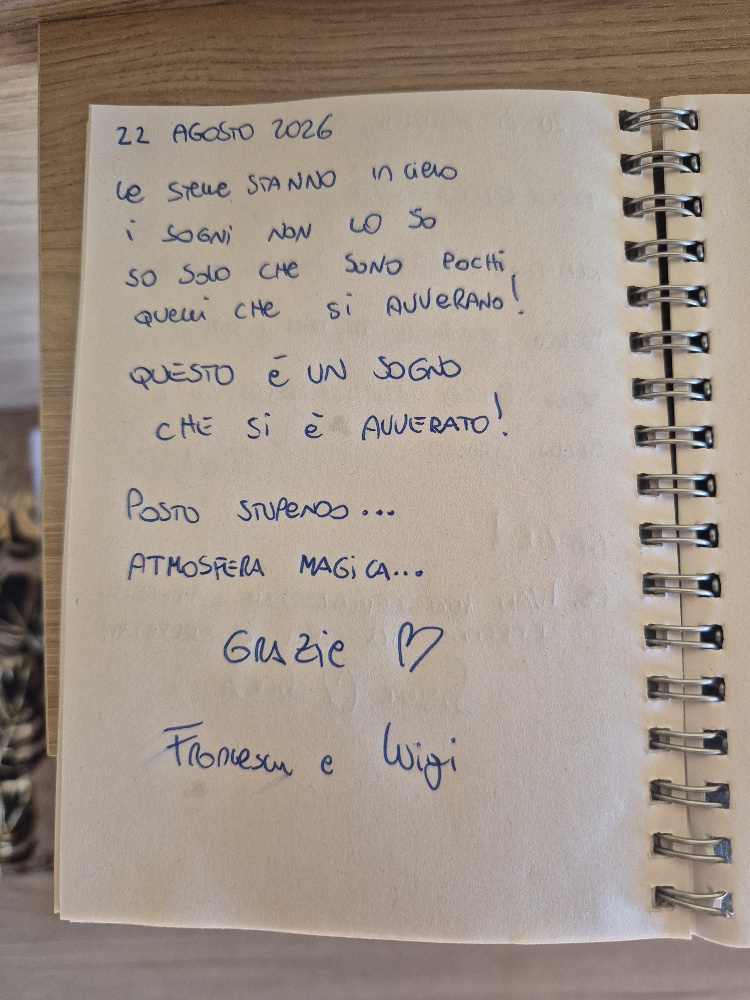 22 AGOSTO 2026
Le STELLE STANNO in cielo
i SOGNi NON LO SO
SO SOLO CHE SONO POCHi
QUELLi CHE Si AVVERANO!
QUESTO è UN SOGNO
CHE Si è AVVERATO!
POSTO STUPENDO...
ATMOSFERA MAGiCA...
GRAZie ♡
Francesca e Luigi